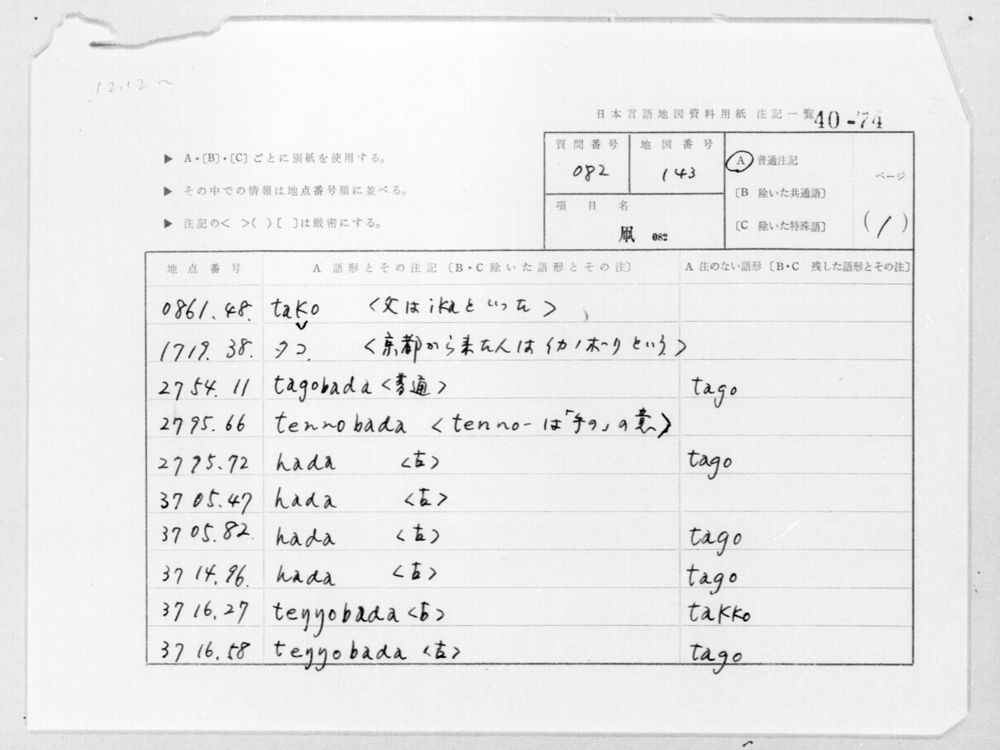 12.12~
日本言語地図資料用紙 注記一覧 40-74
▶ A・〔B〕・〔C〕ごとに別紙を使用する。
▶ その中での情報は地点番号順に並べる。
▶ 注記の< >( )[ ]は厳密にする。
質問番号 地図番号
082 143
項目名
凧 082
A 普通注記
〔B 除いた共通語〕
〔C 除いた特殊語〕
ページ
(1)
地点番号 A 語形とその注記〔B・C除いた語形とその注〕 A 注のない語形〔B・C 残した語形とその注〕
0861.48. tako <父はikaといった>
1719.38. タコ <京都から来た人はイカノボーリという>
2754.11 tagobada <普通> tago
2795.66 tennobada <tenno-は「手の」の意>
2795.72 hada <古> tago
3705.47 hada <古>
3705.82. hada <古> tago
3714.96. hada <古> tago
3716.27 teŋŋobada <古> takko
3716.58 teŋŋobada <古> tago